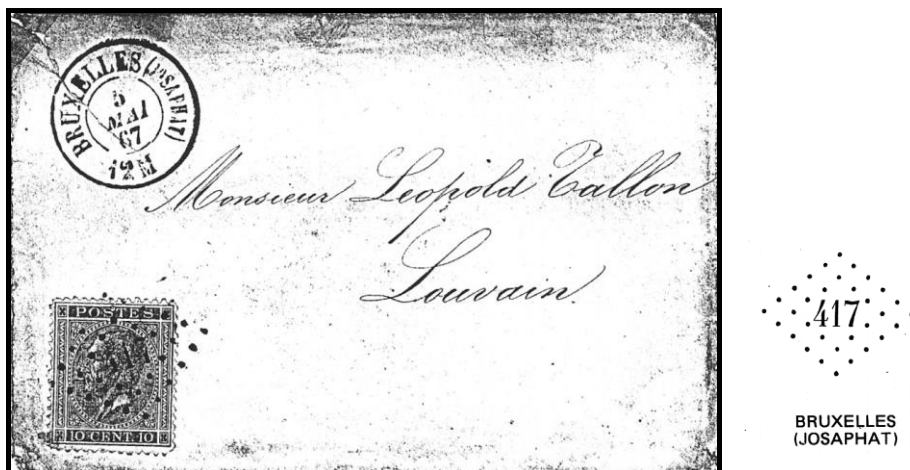 BRUXELLES (JOSAPHAT)
5
MAI
67
12 M
Monsieur Leopold Tallon
Louvain
POSTES
10 CENT. 10
417
BRUXELLES
(JOSAPHAT)